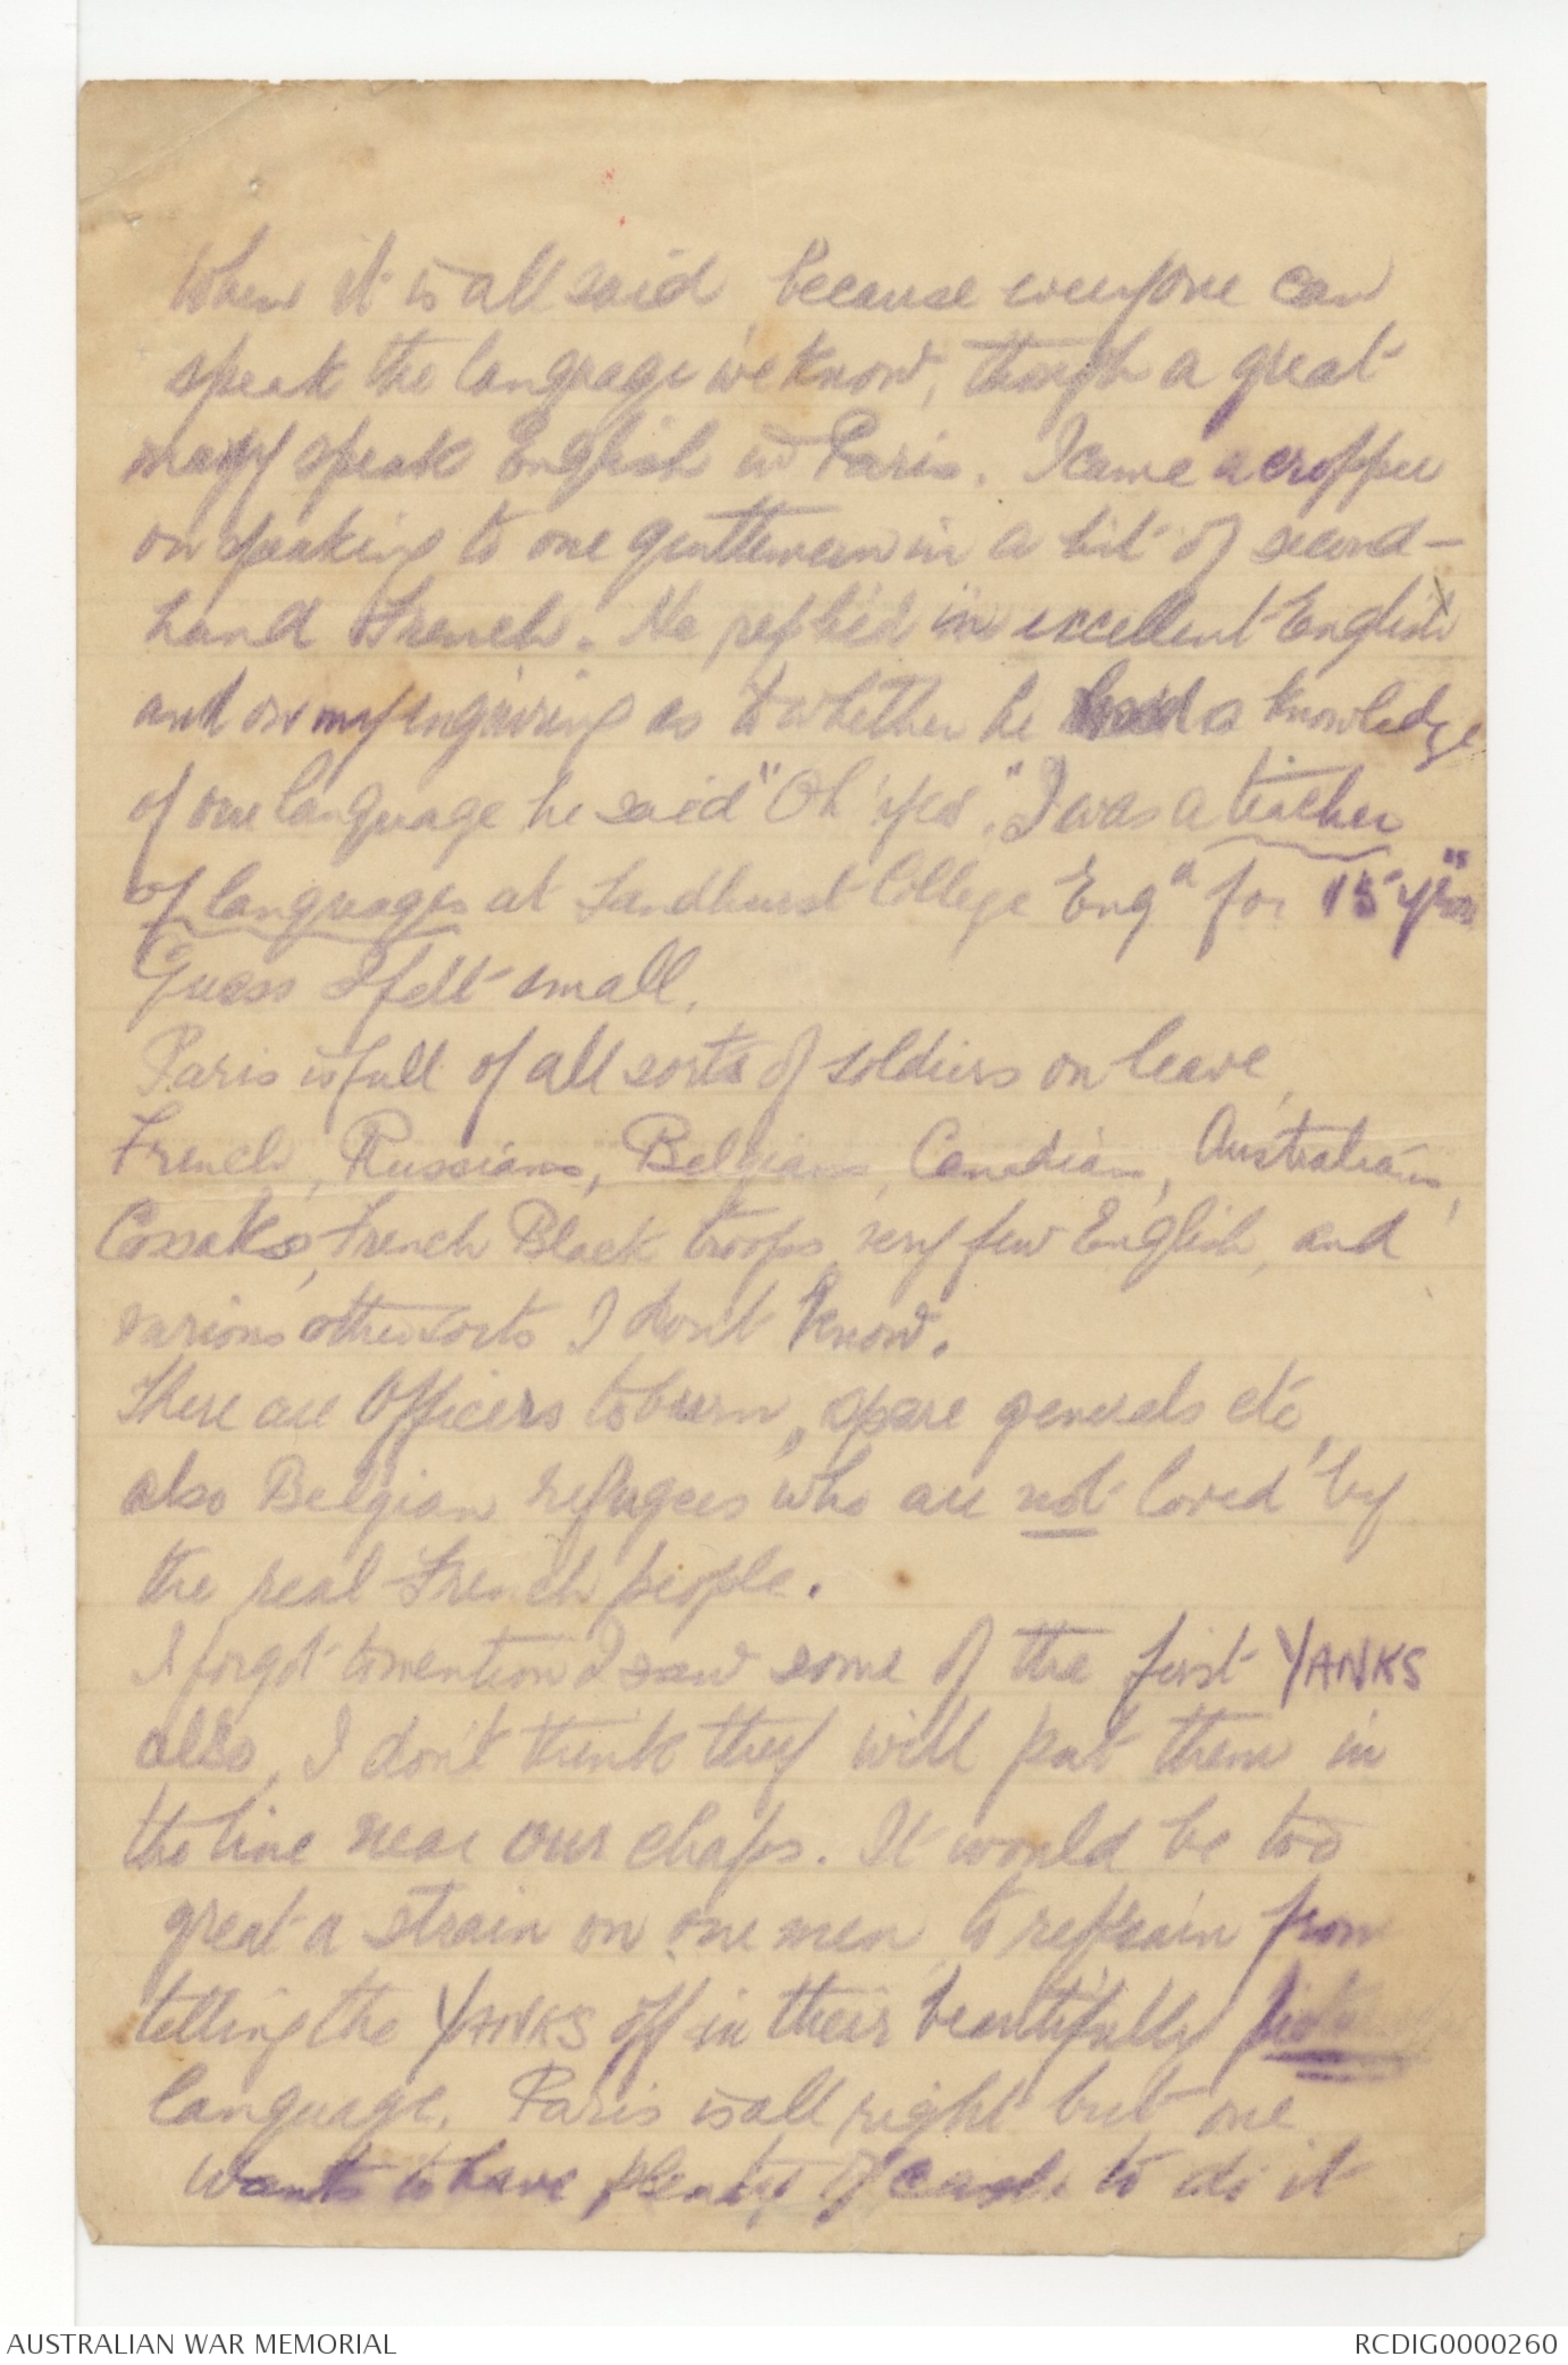 When it is all said, because everyone can
speak the language we know, though a great
many speak English in Paris. I came a cropper
on speaking to one gentleman in a bit of second-
hand French. He replied in excellent English
and on my enquiring as to whether he had a knowledge
of our language he said "Oh 'yes". "I was a teacher
of languages at Sandhurst College Engd for 15 yrs"
Guess I felt small.
Paris is full of all sorts of soldiers on leave,
French, Russians, Belgians, Canadians, Australians,
Cossaks, French Black troops, very few English, and
various other sorts I don't know.
There are Officers to burn, spare generals etc,
also Belgian refugees who are not loved by
the real French people.
I forgot to mention I saw some of the first YANKS
also, I don't think they will put them in
the line near our chaps. It would be too
great a strain on our men, to refrain from
telling the YANKS off in their beautifully
language. Paris is all right but one
wants to have plenty of cash to do it
AUSTRALIAN WAR MEMORIAL
RCDIG0000260